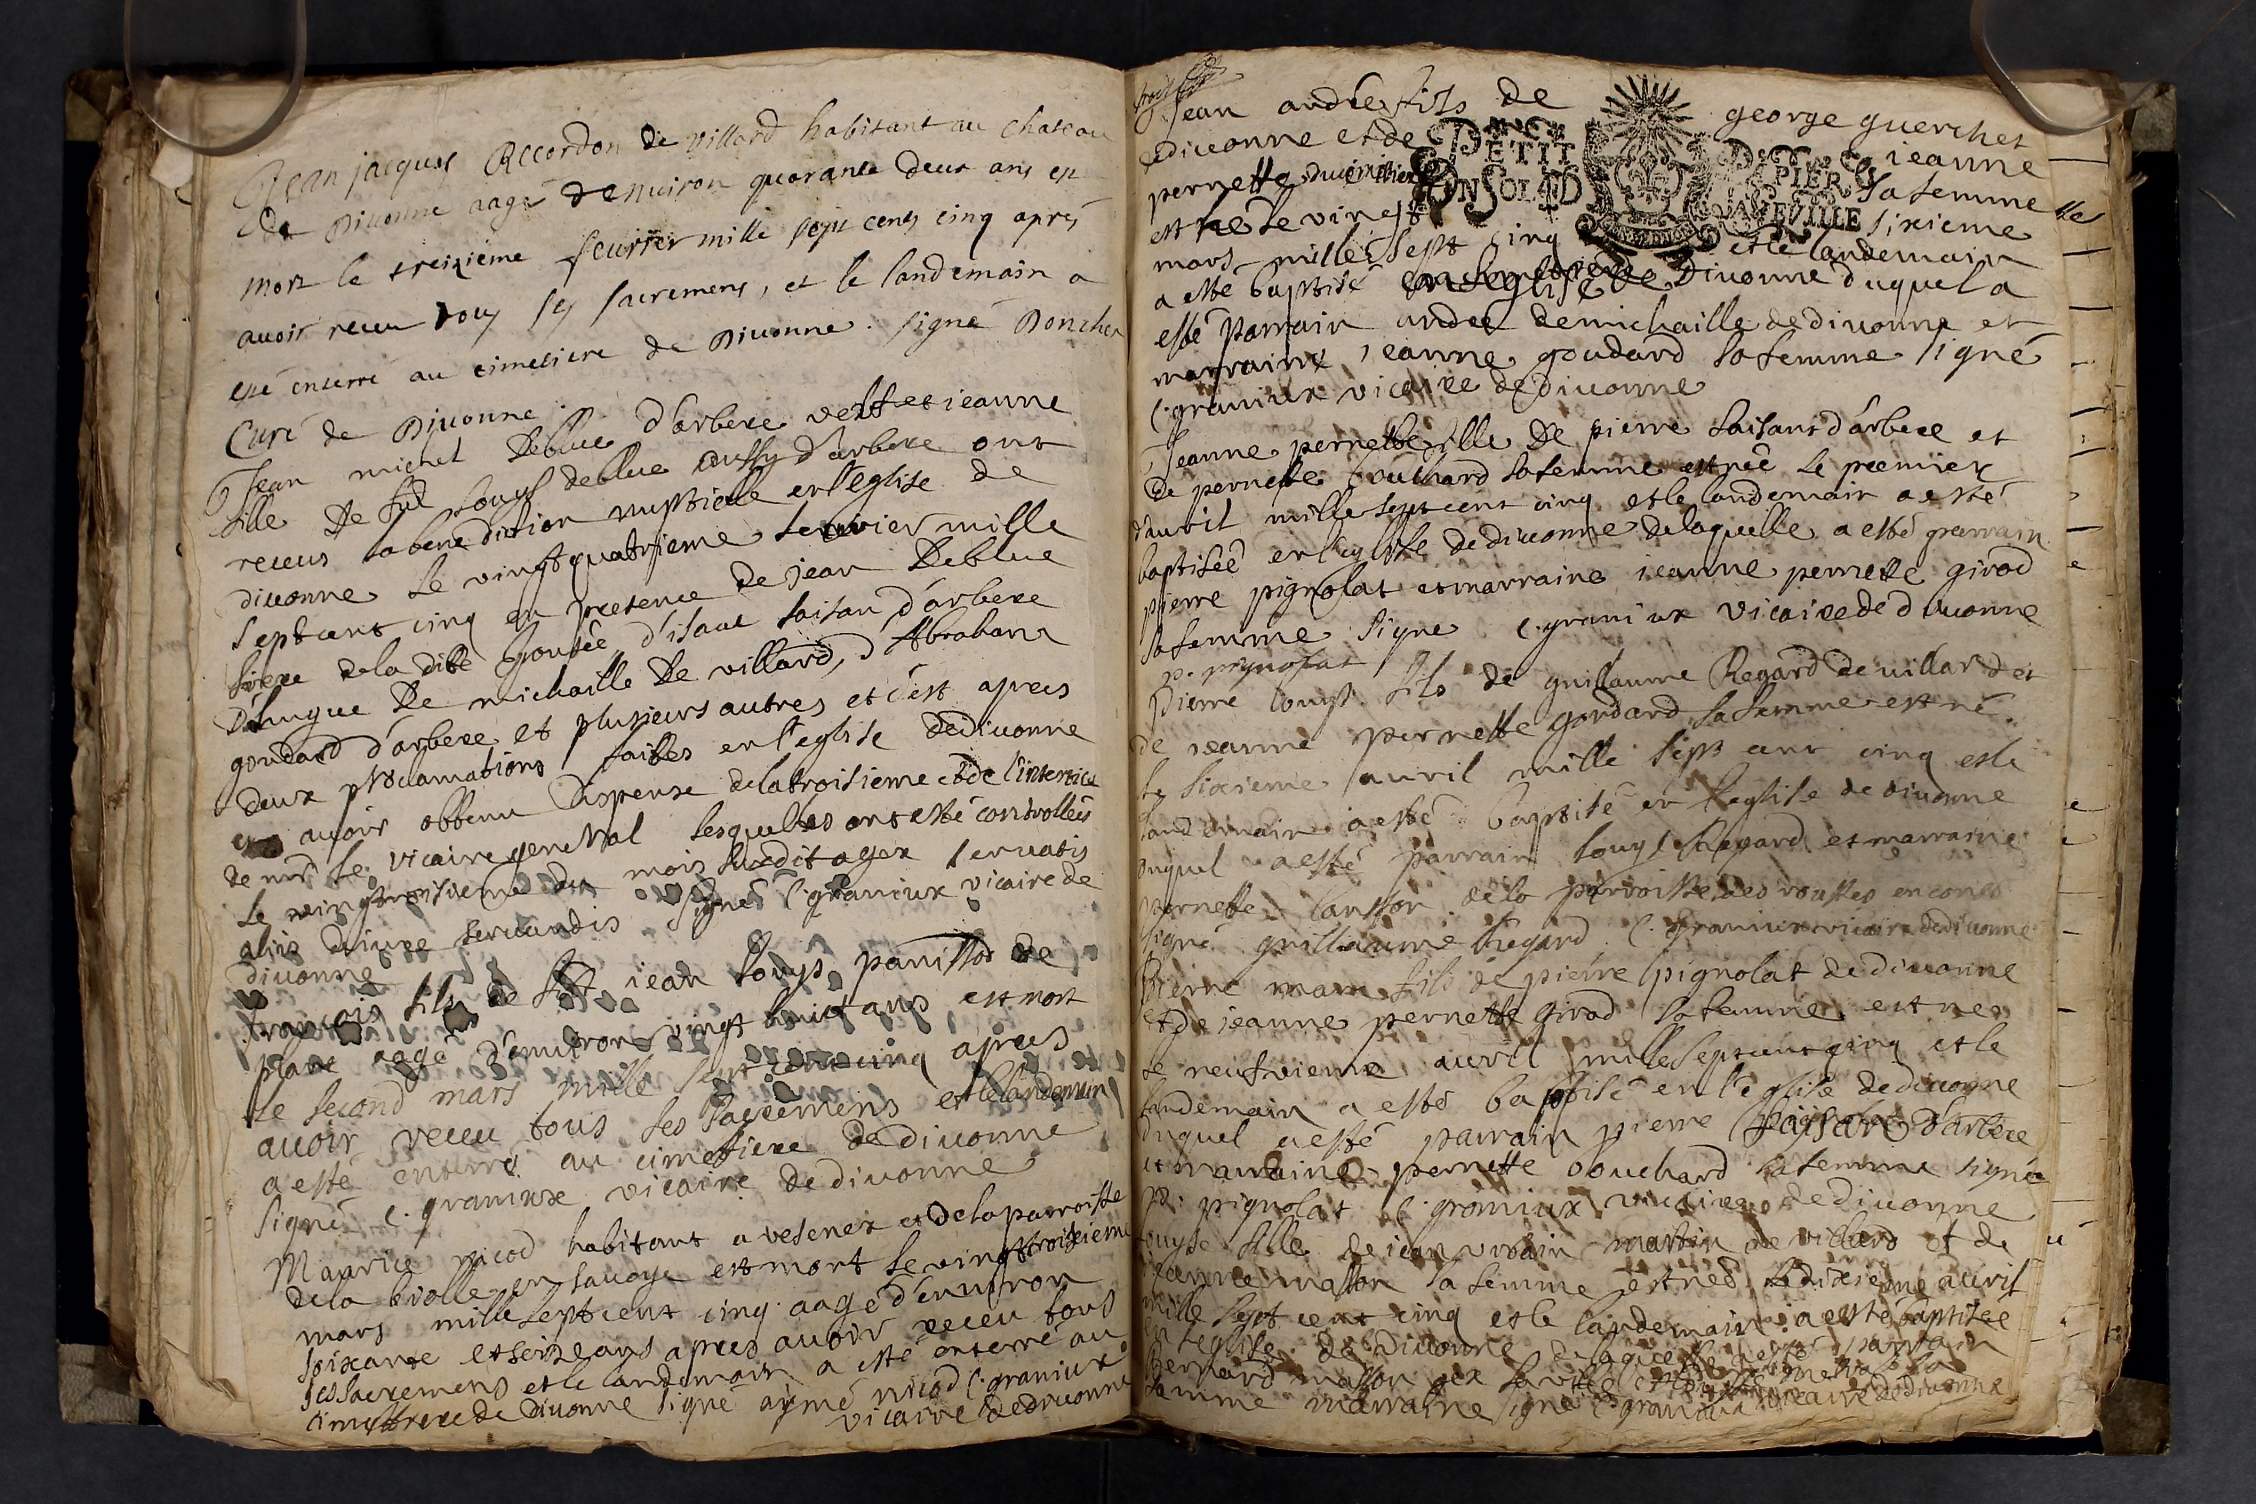 Jean jacques Recordon de villard habitant au chateau
de Divonne aagé denviron quarante deux ans est
mort le treizième feurier mille sept cents cinq aprés
auoir receu tous ses sacremens, et le landemain a
esté enterré au cimetiere de Divonne. signé Poncher
Curé de Divonne.
Jean michel deblue d'arbere veuf et ieanne
fille de fut Louys deblue aussy d'arbere ont
receus la benediction nuptialle en l'eglise de
diuonne le vingtquatrieme feuvrier mille
septcent cinq en presence de jean Deblue
frere de la dite epousée d'isaac saisan d'arbere
De michaille de villard, d'Abraham
goudard d'arbere et plusieurs autres et c'est apres
deux proclamations faittes en l'eglise dediuonne
et auoir obtenu dispense delatroisieme et de l'interstice
de mr le vicairegeneral lesquelles ont esté controllées
le vingttroisieme du mois susdit a gex servatis
aliis servandis signé C. graniux vicaire de
diuonne
françois fils de fut iean Louys panissod de
plare aagé d'enuiron vingt huict ans est mort
le second mars mille sept cent cinq apres
auoir receu tous ses sacremens et le landemain
a esté enterré au cimetiere de diuonne
signé C. graniux vicaire de diuonne
Maurice nicod habitant a vesenex et dela parroisse
dela biolle en sauoye est mort le vingttroisieme
mars mille septcent cinq aagé d'enuiron
soixante et seize ans apres auoir receu tous
ses sacremens et le landemain a esté enterré au
cimetiere de diuonne signé aymé nicod C. graniux
vicaire de diuonne
Jean andre fils de george guerchet
de diuonne et de ieanne
pernette sa femme
est né le vingt sixieme
mars mille sept cinq et le landemain
PETIT PAPIER
EN SOL 4 D LA FEVILLE
a esté baptisé en l'eglise de Diuonne duquel a
esté parrain andre demichaille de diuonne et
marraine ieanne goudard sa femme signé
C. graniux vicaire de diuonne
Jeanne pernette fille de pierre saisant d'arbere et
de pernette bouchard sa femme est née le premier
d'auril mille sept cent cinq et le landemain a esté
baptisée en l'eglise de diuonne delaquelle a esté parrain
pierre pignolat et marraine ieanne pernette girod
sa femme signé C. graniux vicaire de diuonne
p. pignolat
Pierre louys fils de guillaume Regard de villard et
de ieanne pernette goudard sa femme est né
le sixieme auril mille sept cent cinq et le
landemain a esté baptisé en l'eglise de diuonne
duquel a esté parrain louys Regard et marraine
pernette lanson de la parroisse des rousses en conté
signé guillaume Regard C. graniux vicaire de diuonne
Pierre marin fils de pierre pignolat de diuonne
et de ieanne pernette girod sa femme est né
le neufvieme auril mille septcent cinq et le
landemain a esté baptisé en l'eglise de diuonne
duquel a esté parrain pierre saisan d'arbere
et marraine pernette bouchard sa femme signé
p. pignolat C. graniux vicaire de diuonne
Louyse fille de iean vrbain martin de villard et de
ieanne masson sa femme est née le dixieme auril
mille sept cent cinq et le landemain a esté baptisée
en l'eglise de Diuonne delaquelle a esté parrain
Bernard masson
femme marraine signé C. graniux vicaire de diuonne